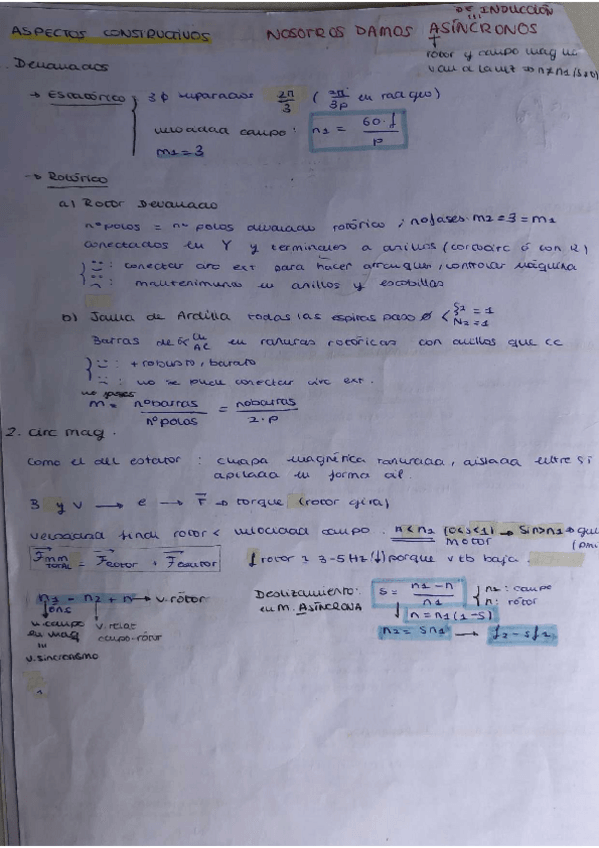 DE INDUCCIÓN
ASPECTOS CONSTRUCTIVOS NOSOTROS DAMOS ASÍNCRONOS
rotor y campo mag no
van a la vez => n≠n1 (s≠0)
Devanados
→ Estatórico 3φ separados 2π/3 (2π/3p en rad geo)
velocidad campo: n1 = 60·f/p
m1=3
→ Rotórico
a) Rotor Devanado
nº polos = nº polos devanado rotórico ; nofases m2=3=m1
conectados en Y y terminales a anillos (cortocirc ó con R)
:) : conectar circ ext para hacer arranques, controlar máquina
:( : mantenimiento en anillos y escobillas
b) Jaula de Ardilla todas las espiras paso ∅ < ξ2=1 N2=1
Barras de Cu AL en ranuras rotóricas con anillos que cc
:) : + robusto, barato
:( : no se puede conectar circ ext.
no fases
m = nº barras/nº polos = nobarras/2·p
2. circ mag.
como el del estator : chapa magnética ranurada, aislada entre sí
apilada en forma cil.
B y v → e → F → torque (rotor gira)
velocidad final rotor < velocidad campo. n<n1 (0<s<1) → Si n>n1 →
Motor
Fmm TOTAL = Frotor + Festator f rotor ≈ 3-5Hz (↓) porque v tb baja.
n1 = n2 + n → v. rotor
v. campo
mag
v. relat
campo-rotor
v. sincronismo
Deslizamiento: s = n1 - n/n1 n1: campo
en M. ASÍNCRONA n: rotor
n = n1(1-s)
n2 = sn1 → f2 = sf1
1